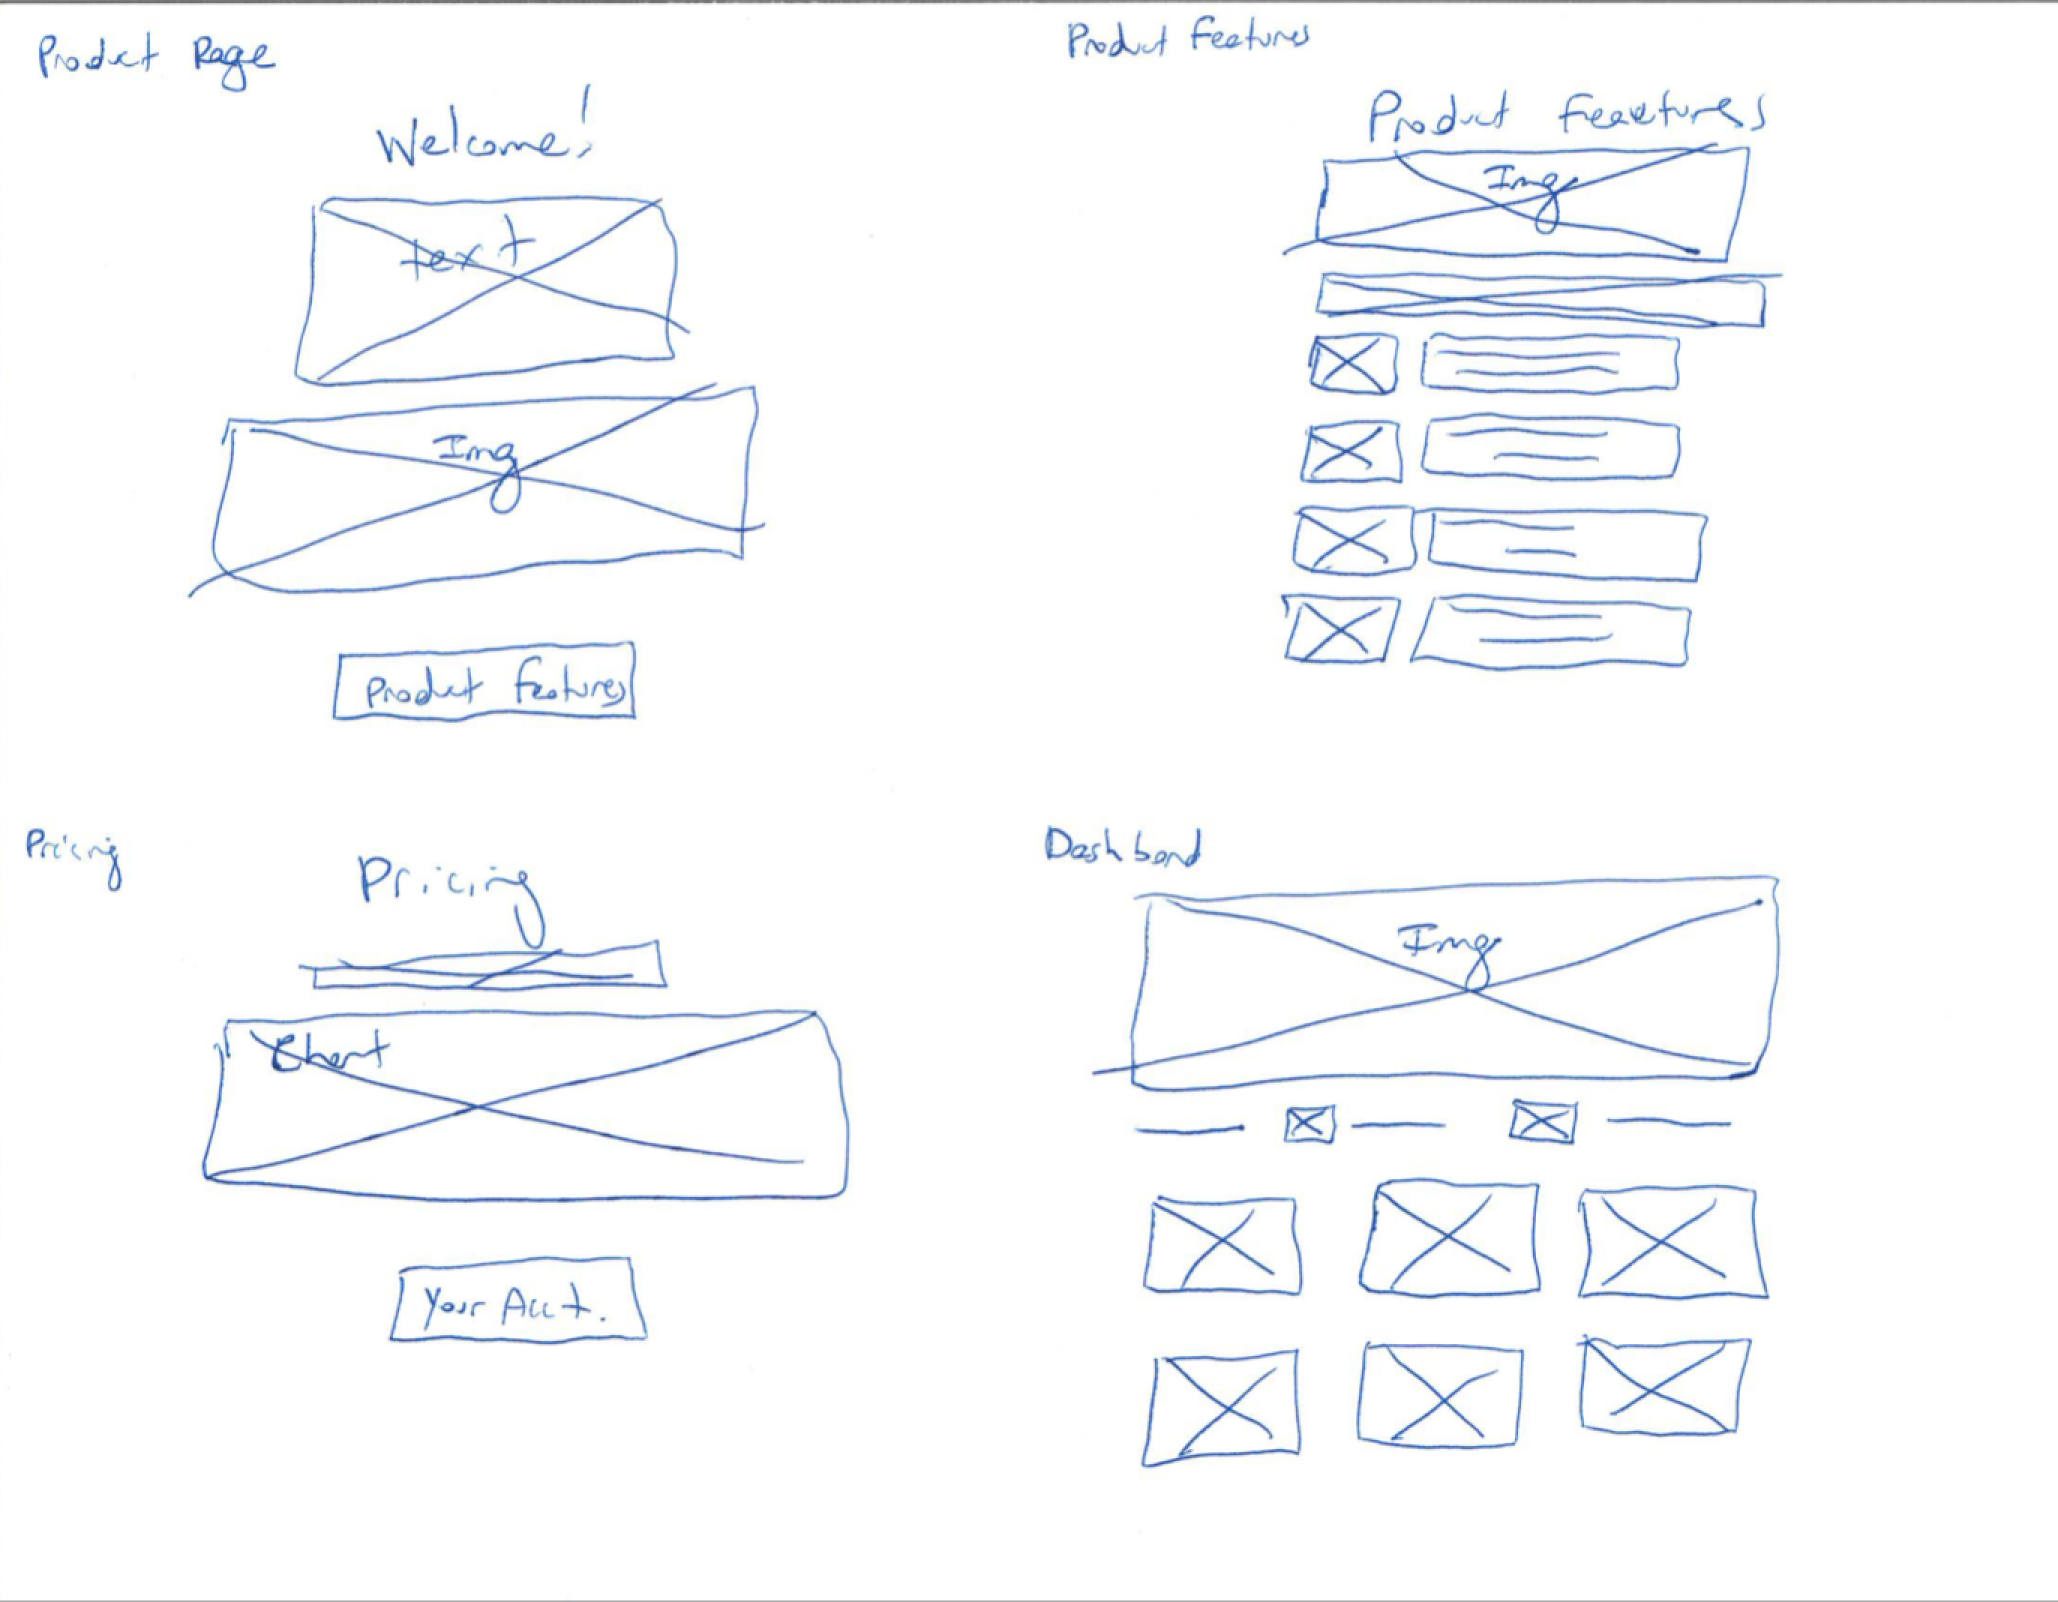 Product Page
Welcome!
text
Img
Product Features
Product Features
Product Feeatures
Img
Pricing
Pricing
Chart
Your Acct.
Dashbord
Img